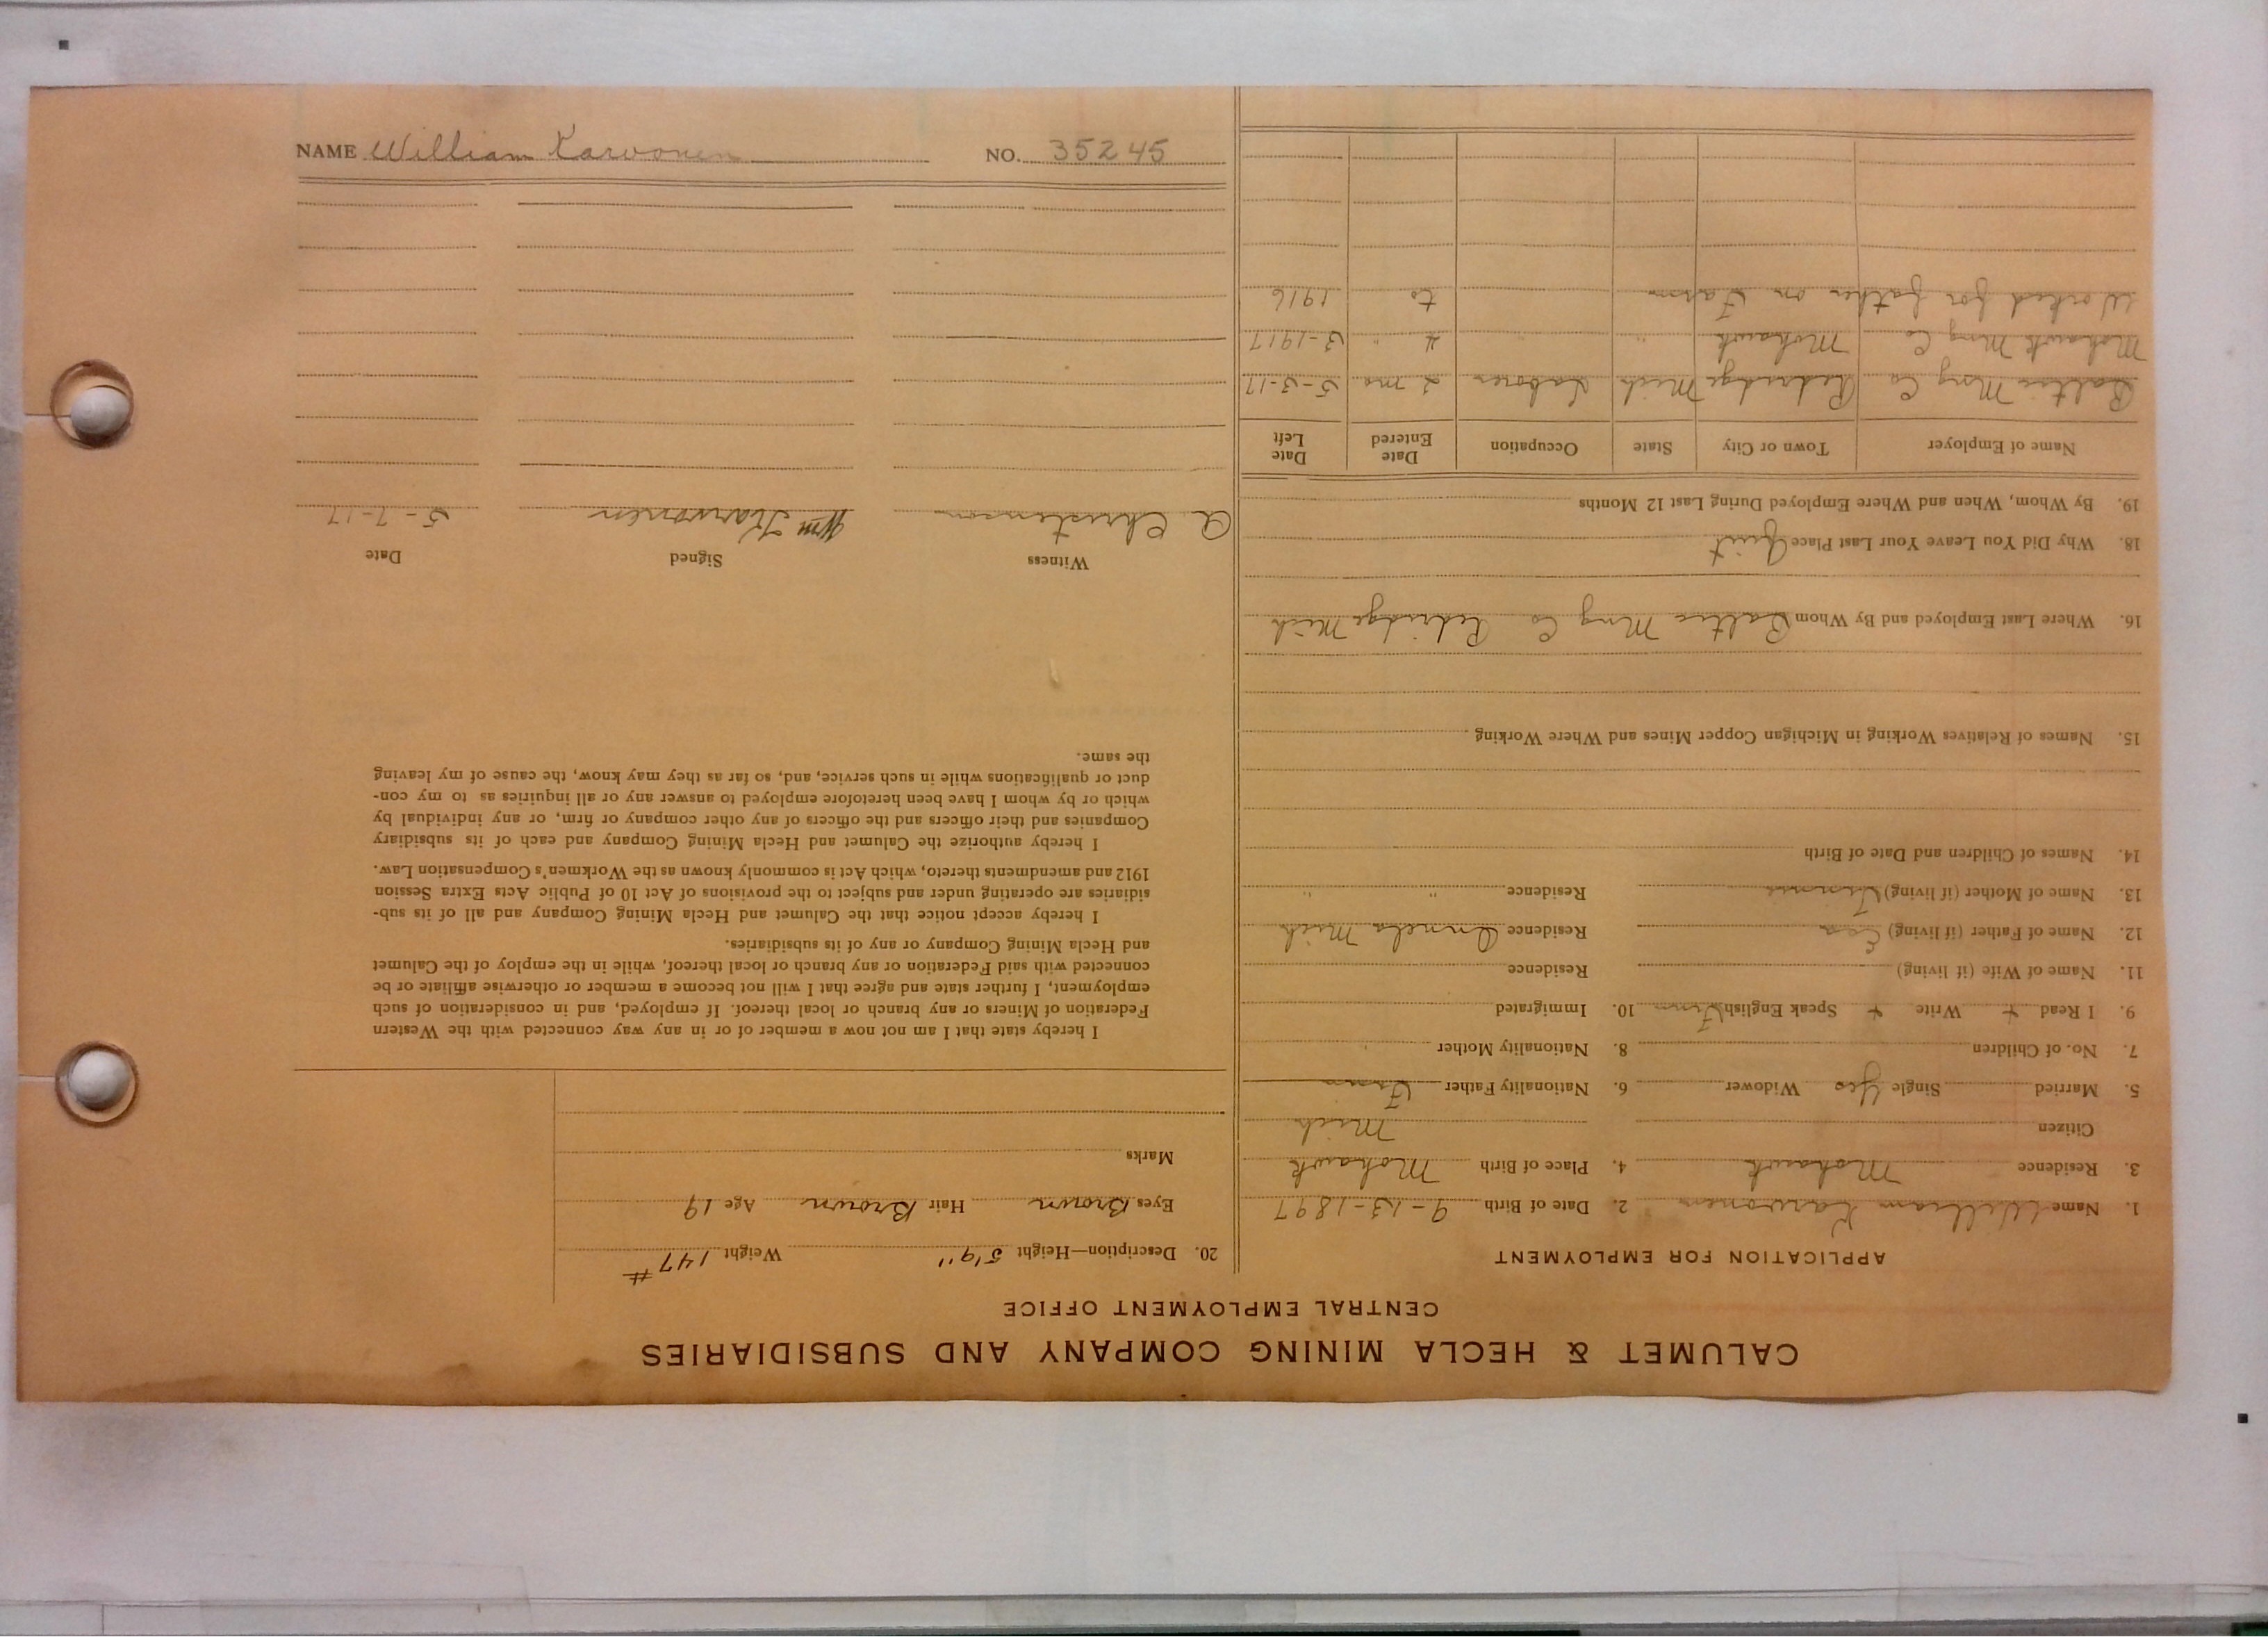 CALUMET & HECLA MINING COMPANY AND SUBSIDIARIES
CENTRAL EMPLOYMENT OFFICE
APPLICATION FOR EMPLOYMENT
1. Name William Karvonen 2. Date of Birth 9-13-1897
3. Residence Mohawk 4. Place of Birth Mohawk
Citizen Mich
5. Married Single Yes Widower 6. Nationality Father Finn
7. No. of Children 8. Nationality Mother "
9. I Read + Write + Speak English Finn 10. Immigrated
11. Name of Wife (if living) Residence
12. Name of Father (if living) Residence Mich
13. Name of Mother (if living) Residence " "
14. Names of Children and Date of Birth
15. Names of Relatives Working in Michigan Copper Mines and Where Working
16. Where Last Employed and By Whom Baltic Mng Co Redridge Mich
18. Why Did You Leave Your Last Place Quit
19. By Whom, When and Where Employed During Last 12 Months
Name of Employer Town or City State Occupation Date Entered Date Left
Baltic Mng Co Redridge Mich Laborer 2 mo 5-3-17
Mohawk Mng Co Mohawk " " 4 " 3-1917
Worked for father on Farm to 1916
20. Description—Height 5'9" Weight 147#
Eyes Brown Hair Brown Age 19
Marks
I hereby state that I am not now a member of or in any way connected with the Western
Federation of Miners or any branch or local thereof. If employed, and in consideration of such
employment, I further state and agree that I will not become a member or otherwise affiliate or be
connected with said Federation or any branch or local thereof, while in the employ of the Calumet
and Hecla Mining Company or any of its subsidiaries.
I hereby accept notice that the Calumet and Hecla Mining Company and all of its sub-
sidiaries are operating under and subject to the provisions of Act 10 of Public Acts Extra Session
1912 and amendments thereto, which Act is commonly known as the Workmen's Compensation Law.
I hereby authorize the Calumet and Hecla Mining Company and each of its subsidiary
Companies and their officers and the officers of any other company or firm, or any individual by
which or by whom I have been heretofore employed to answer any or all inquiries as to my con-
duct or qualifications while in such service, and, so far as they may know, the cause of my leaving
the same.
Witness Signed Date
A. Christenson Wm Karvonen 5-7-17
NAME William Karvonen NO. 35245